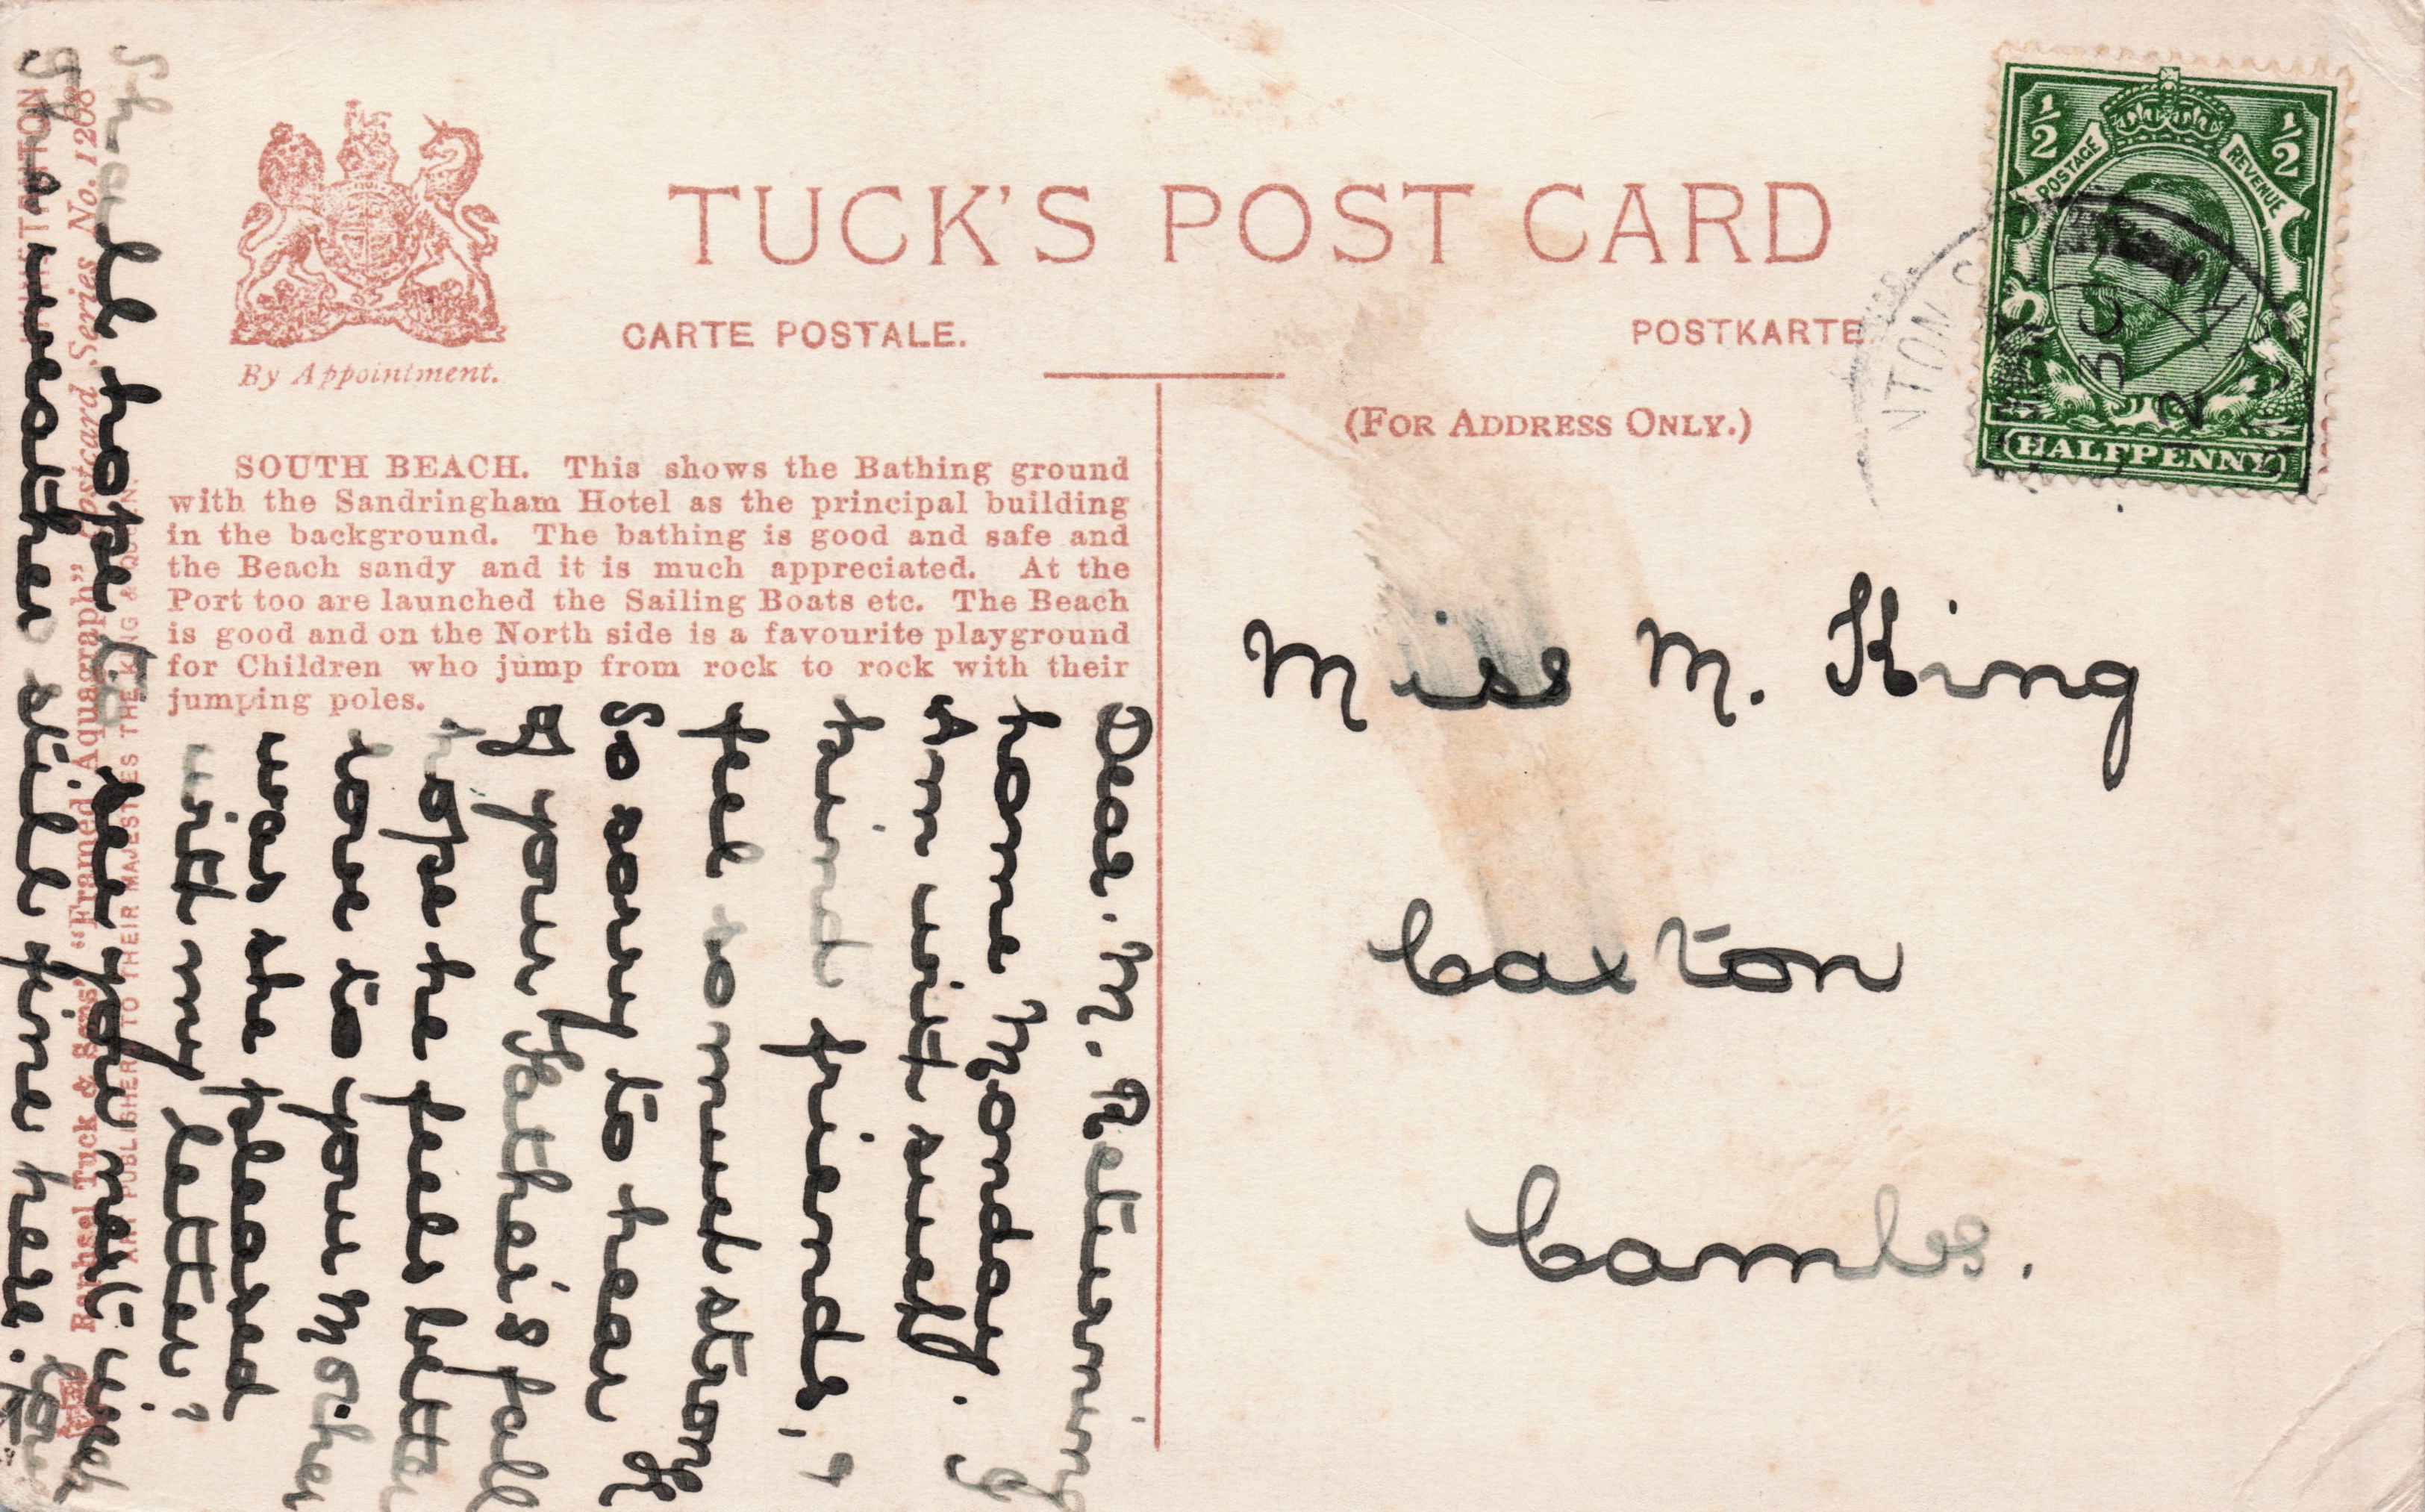 TUCK'S POST CARD
CARTE POSTALE.
POSTKARTE
By Appointment.
(FOR ADDRESS ONLY.)
SOUTH BEACH. This shows the Bathing ground
with the Sandringham Hotel as the principal building
in the background. The bathing is good and safe and
the Beach sandy and it is much appreciated. At the
Port too are launched the Sailing Boats etc. The Beach
is good and on the North side is a favourite playground
for Children who jump from rock to rock with their
jumping poles.
Dear. M. Returning
home Monday. I
Am with such
kind friends, I
feel so much stronger
So sorry to hear
of your Father's fall
hope he feels better
love to you Mother
was she pleased
with my letter?
Shall hope to see you next week
The weather still fine here.
Raphael Tuck & Sons' "Framed Aquagraph" Postcard Series No. 1208
ART PUBLISHERS TO THEIR MAJESTIES THE KING & QUEEN.
HUNSTANTON
½ ½
POSTAGE REVENUE
HALFPENNY
NTON
12
Miss M. King
Caxton
Cambs.